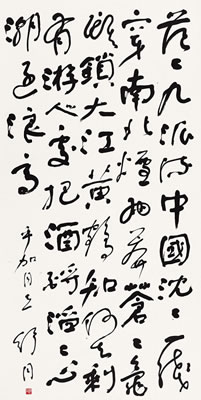 茫〻九派流中國沈〻一線
穿南北煙雨莽蒼〻龜
蛇鎖大江黃鶴知何去剩
有游人處把酒酹滔〻心
潮逐浪高
舒同